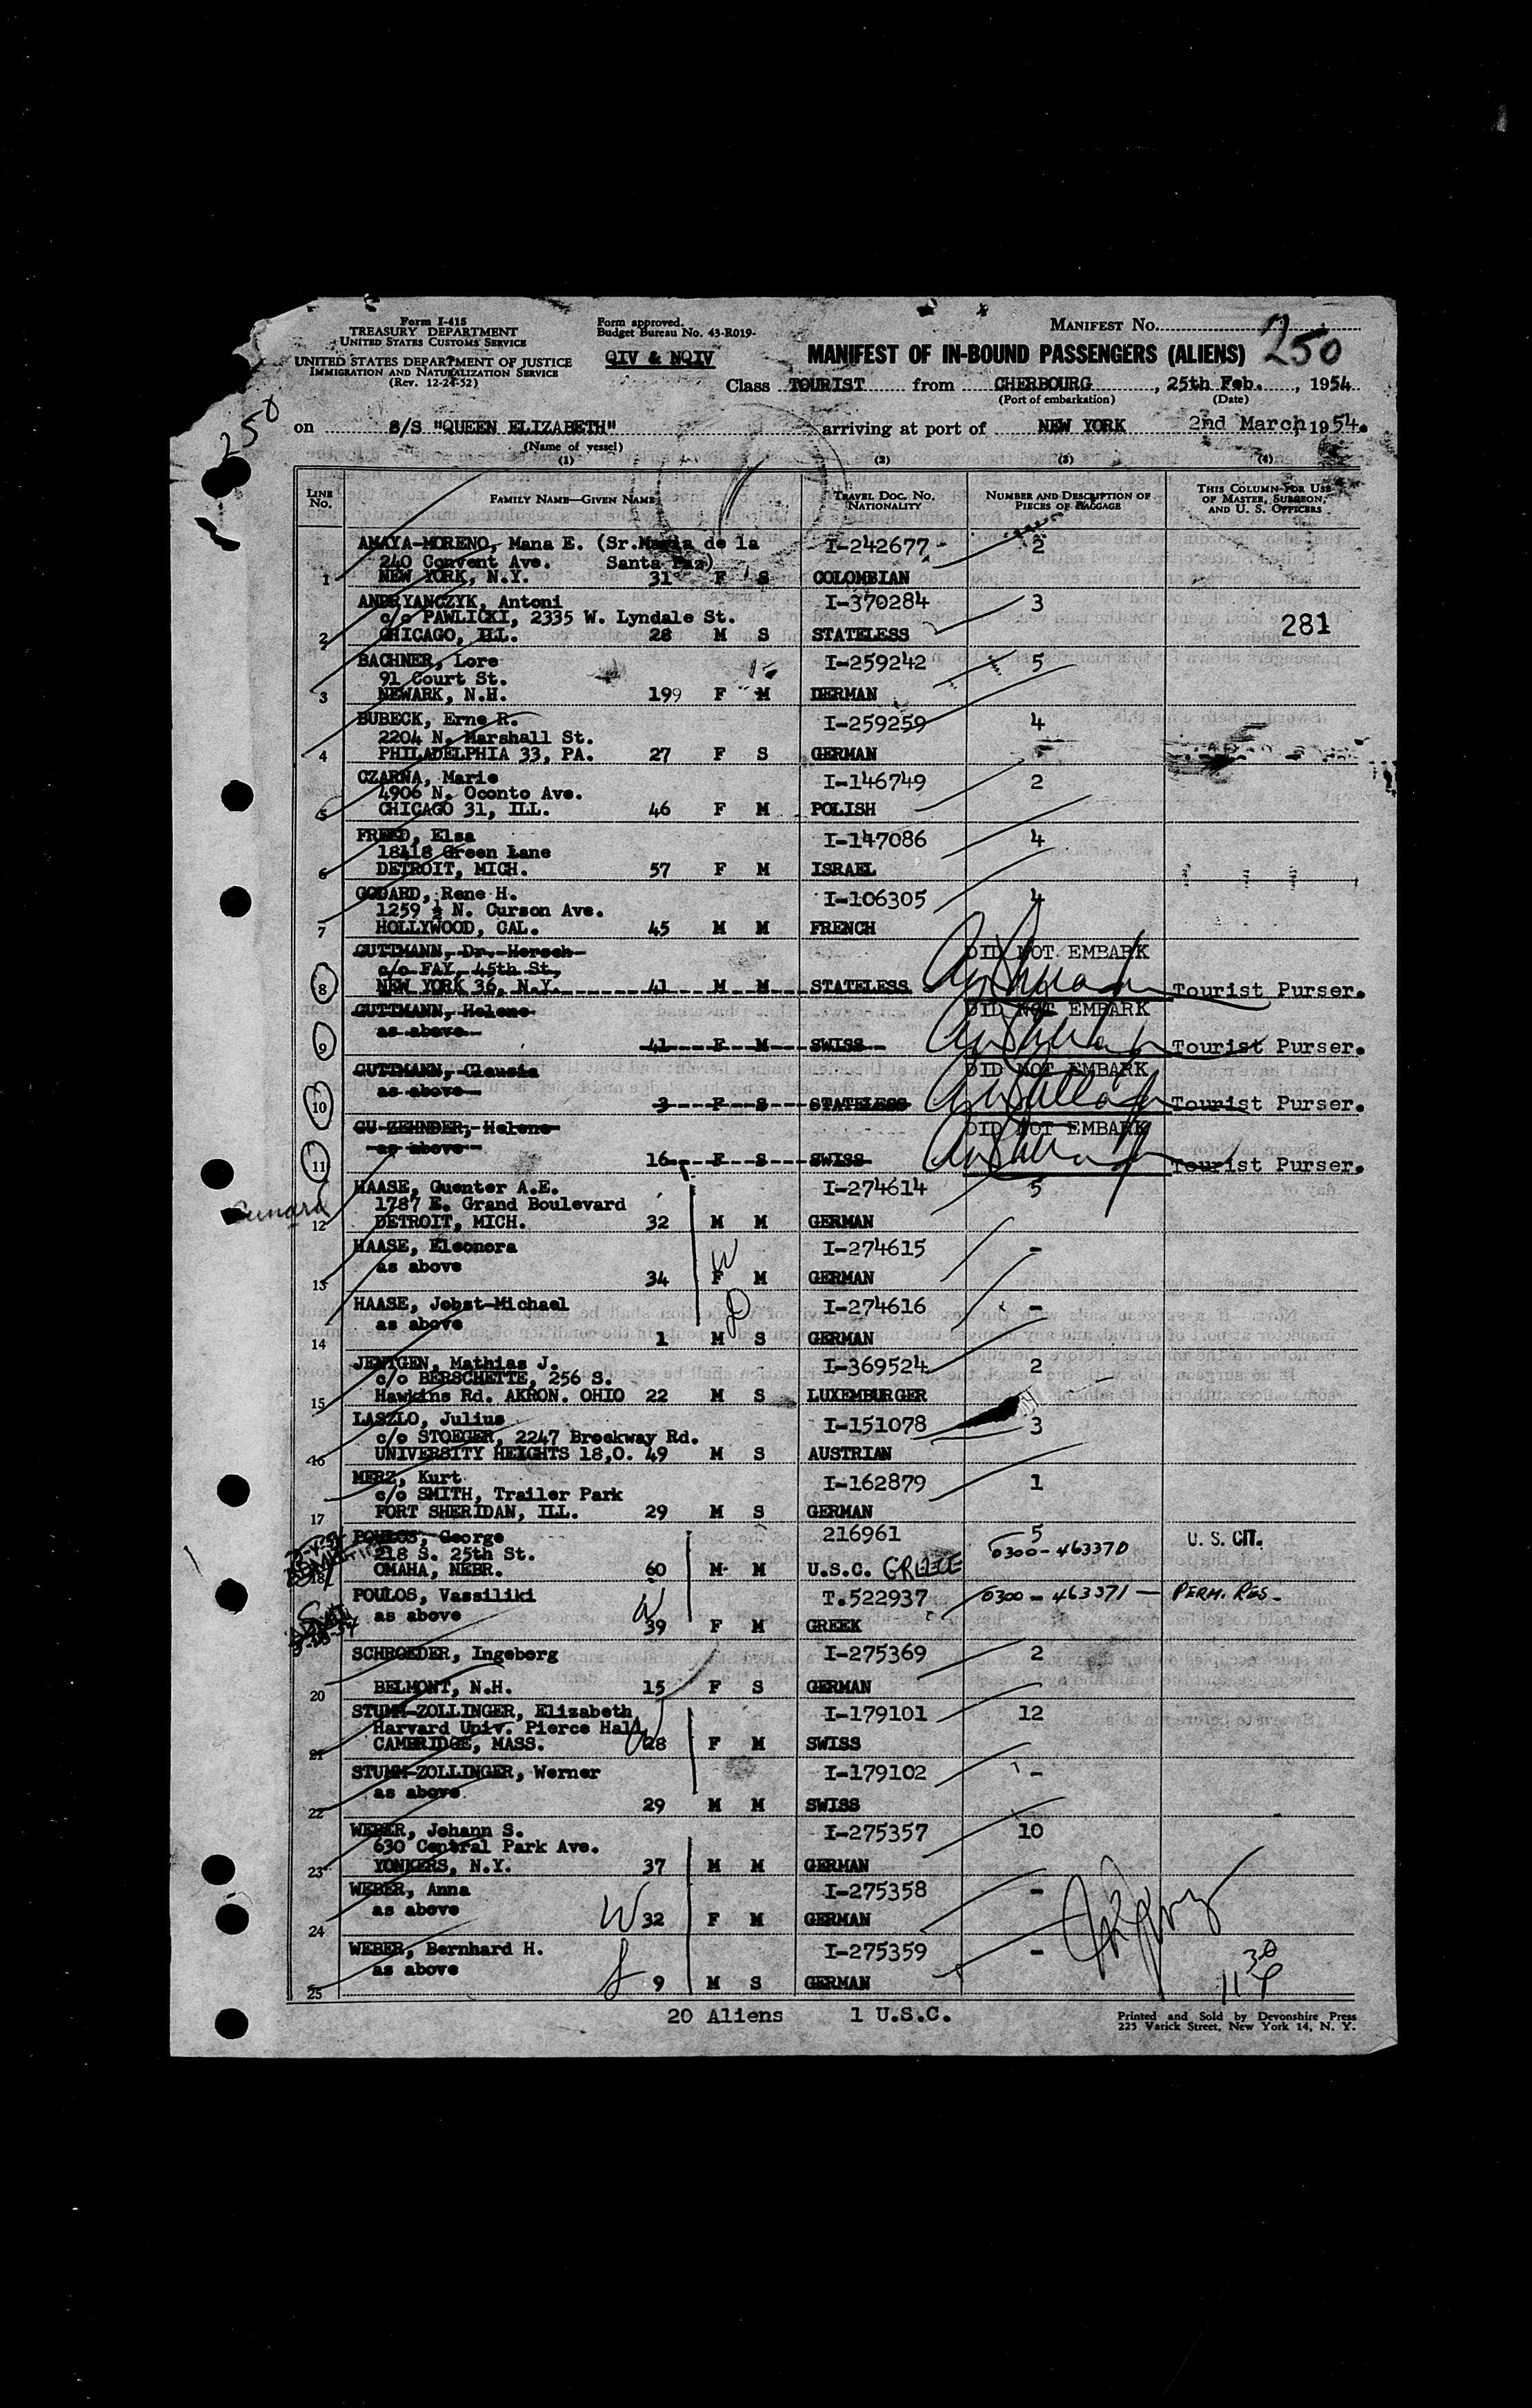 Form I-415
TREASURY DEPARTMENT
UNITED STATES CUSTOMS SERVICE
UNITED STATES DEPARTMENT OF JUSTICE
IMMIGRATION AND NATURALIZATION SERVICE
(Rev. 12-24-52)
Form approved.
Budget Bureau No. 43-R019-
QIV & NQIV
MANIFEST NO. 250
MANIFEST OF IN-BOUND PASSENGERS (ALIENS)
Class TOURIST from CHERBOURG, 25th Feb., 1954
(Port of embarkation) (Date)
250
on S/S "QUEEN ELIZABETH" arriving at port of NEW YORK 2nd March, 1954.
(Name of vessel)
(1) (2) (3) (4)
LINE NO. FAMILY NAME—GIVEN NAME TRAVEL DOC. NO. NATIONALITY NUMBER AND DESCRIPTION OF PIECES OF BAGGAGE THIS COLUMN FOR USE OF MASTER, SURGEON, AND U. S. OFFICERS
AMAYA-MORENO, Mana E. (Sr.Maria de la I-242677 2
240 Convent Ave. Santa Paz)
1 NEW YORK, N.Y. 31 F S COLOMBIAN
ANDRYANCZYK, Antoni I-370284 3
c/o PAWLICKI, 2335 W. Lyndale St. 281
2 CHICAGO, ILL. 28 M S STATELESS
BACHNER, Lore I-259242 5
91 Court St.
3 NEWARK, N.H. 199 F M DERMAN
BUBECK, Erne R. I-259259 4
2204 N. Marshall St.
4 PHILADELPHIA 33, PA. 27 F S GERMAN
CZARNA, Marie I-146749 2
4906 N. Oconto Ave.
5 CHICAGO 31, ILL. 46 F M POLISH
FREED, Elsa I-147086 4
18418 Green Lane
6 DETROIT, MICH. 57 F M ISRAEL
GODARD, Rene H. I-106305 4
1259 ½ N. Curson Ave.
7 HOLLYWOOD, CAL. 45 M M FRENCH
GUTTMANN, Dr. Hersch DID NOT EMBARK
c/o FAY, 45th St,
8 NEW YORK 36, N.Y. 41 M M STATELESS Tourist Purser.
GUTTMANN, Helene DID NOT EMBARK
as above
9 41 F M SWISS Tourist Purser.
GUTTMANN, Clausia DID NOT EMBARK
as above
10 3 F S STATELESS Tourist Purser.
GU ZEHNDER, Helene DID NOT EMBARK
as above
11 16 F S SWISS Tourist Purser.
HAASE, Guenter A.E. I-274614 5
1787 E. Grand Boulevard
Cunard
12 DETROIT, MICH. 32 M M GERMAN
HAASE, Eleonora I-274615 -
as above W
13 34 F M GERMAN
HAASE, Jobst-Michael I-274616 -
as above
14 1 M S GERMAN
JENTGEN, Mathias J. I-369524 2
c/o BERSCHETTE, 256 S.
15 Hawkins Rd. AKRON. OHIO 22 M S LUXEMBURGER
LASZLO, Julius I-151078 3
c/o STOEGER, 2247 Brockway Rd.
16 UNIVERSITY HEIGHTS 18,O. 49 M S AUSTRIAN
MERZ, Kurt I-162879 1
c/o SMITH, Trailer Park
17 FORT SHERIDAN, ILL. 29 M S GERMAN
POULOS, George 216961 5 U. S. CIT.
218 S. 25th St. 0300-463370
18 OMAHA, NEBR. 60 M M U.S.C. GREECE
POULOS, Vassiliki T.522937 0300-463371 — PERM. RES.
as above W
39 F M GREEK
SCHROEDER, Ingeborg I-275369 2
20 BELMONT, N.H. 15 F S GERMAN
STUMM-ZOLLINGER, Elizabeth I-179101 12
Harvard Univ. Pierce Hall
21 CAMBRIDGE, MASS. 28 F M SWISS
STUMM-ZOLLINGER, Werner I-179102 -
as above
22 29 M M SWISS
WEBER, Johann S. I-275357 10
630 Central Park Ave.
23 YONKERS, N.Y. 37 M M GERMAN
WEBER, Anna I-275358 -
as above
24 W 32 F M GERMAN
WEBER, Bernhard H. I-275359 -
as above
25 9 M S GERMAN
20 Aliens 1 U.S.C.
Printed and Sold by Devonshire Press
225 Varick Street, New York 14, N. Y.